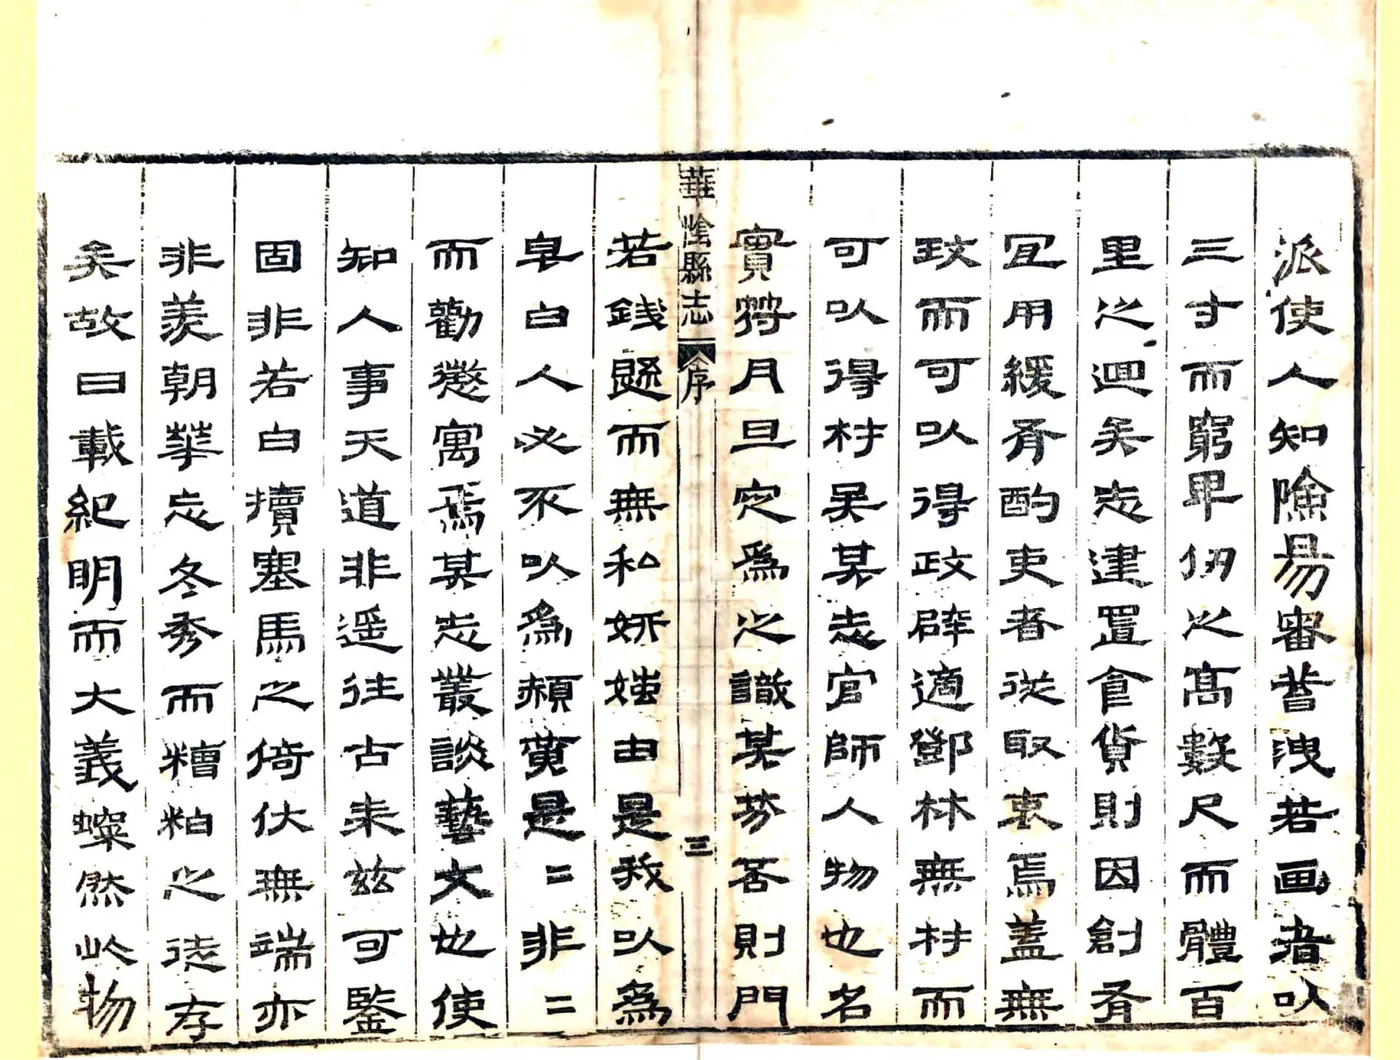 派使人知險易審蓄洩若画者以
三寸而窮畢仞之高數尺而體百
里之迴矣志建置食貨則因創胥
冝用緩胥酌吏者從取衷焉蓋無
政而可以得政辟適鄧林無材而
可以得材吴某志官師人物也名
實符月旦定焉之識某芬否則門
華陰縣志
序
三
若錢懸而無私妍媸由是我以爲
皁白人必不以爲頳黄是二非二
而勸懲寓焉某志叢談藝文也使
知人事天道非遥往古来兹可鑒
固非若白犢塞馬之倚伏無端亦
非羨朝華忘冬秀而糟粕之徒存
矣故曰載紀明而大義燦然此物